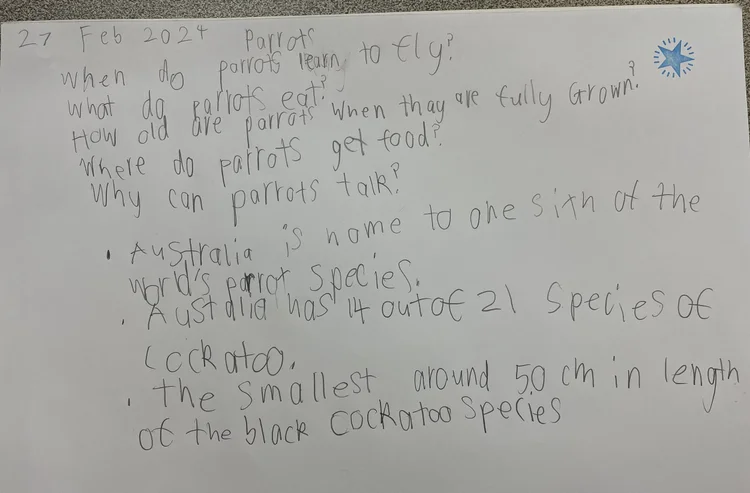 27 Feb 2024 Parrots
When do parrots learn to fly?
What do parrots eat?
How old are parrots when thay are fully Grown?
Where do parrots get food?
Why can parrots talk?
• Australia is home to one sixth of the
world's parrot species.
• Austalia has 14 out of 21 species of
Cockatoo.
• the smallest around 50 cm in length
of the black cockatoo species